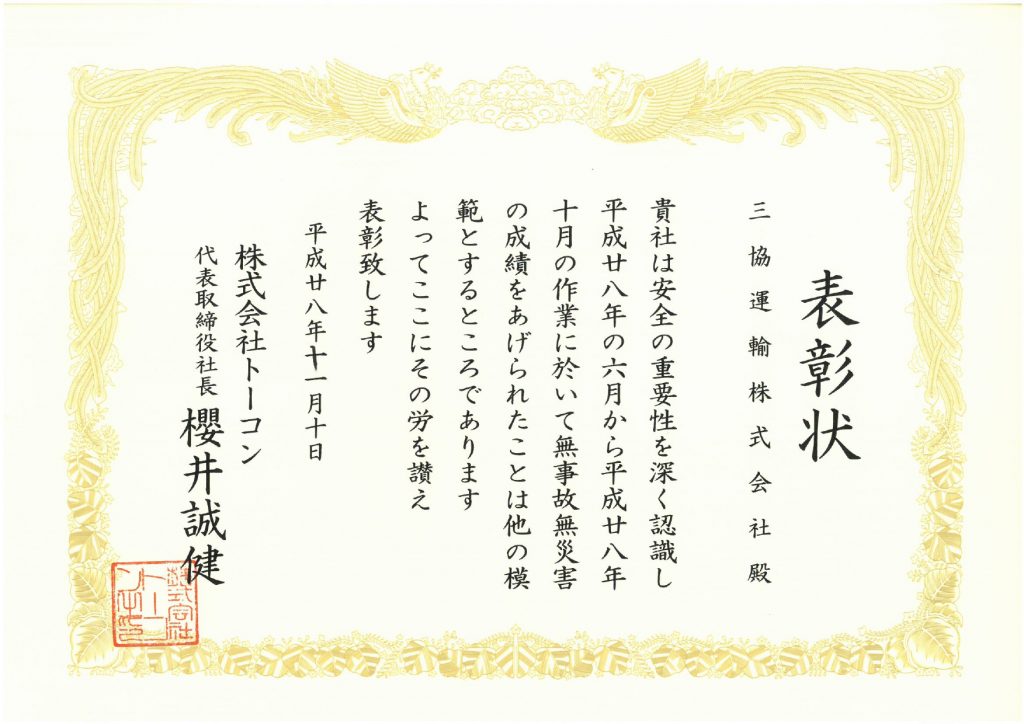 表彰状
三協運輸株式会社殿
貴社は安全の重要性を深く認識し
平成廿八年の六月から平成廿八年
十月の作業に於いて無事故無災害
の成績をあげられたことは他の模
範とするところであります
よってここにその労を讃え
表彰致します
平成廿八年十一月十日
株式会社トーコン
代表取締役社長 櫻井誠健
株式会社
トーコ
ン之印